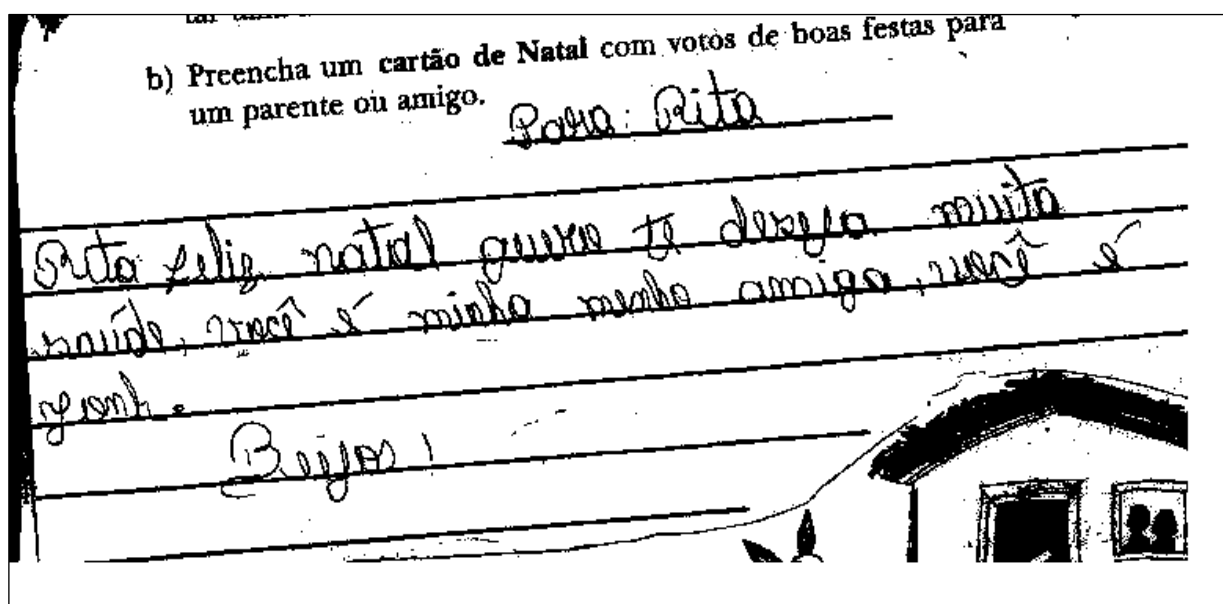 b) Preencha um cartão de Natal com votos de boas festas para
um parente ou amigo.
Para: Rita
Rita feliz natal quero te deseja muita
saúde, você é minha menha amiga, você é
Beijos!